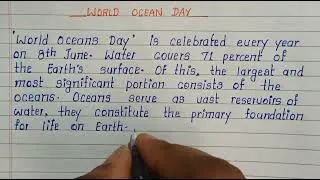 WORLD OCEAN DAY
'World Oceans Day' is celebrated every year
on 8th June. Water covers 71 percent of
the Earth's surface. Of this, the largest and
most significant portion consists of the
oceans. Oceans serve as vast reservoirs of
water, they constitute the primary foundation
for life on Earth.